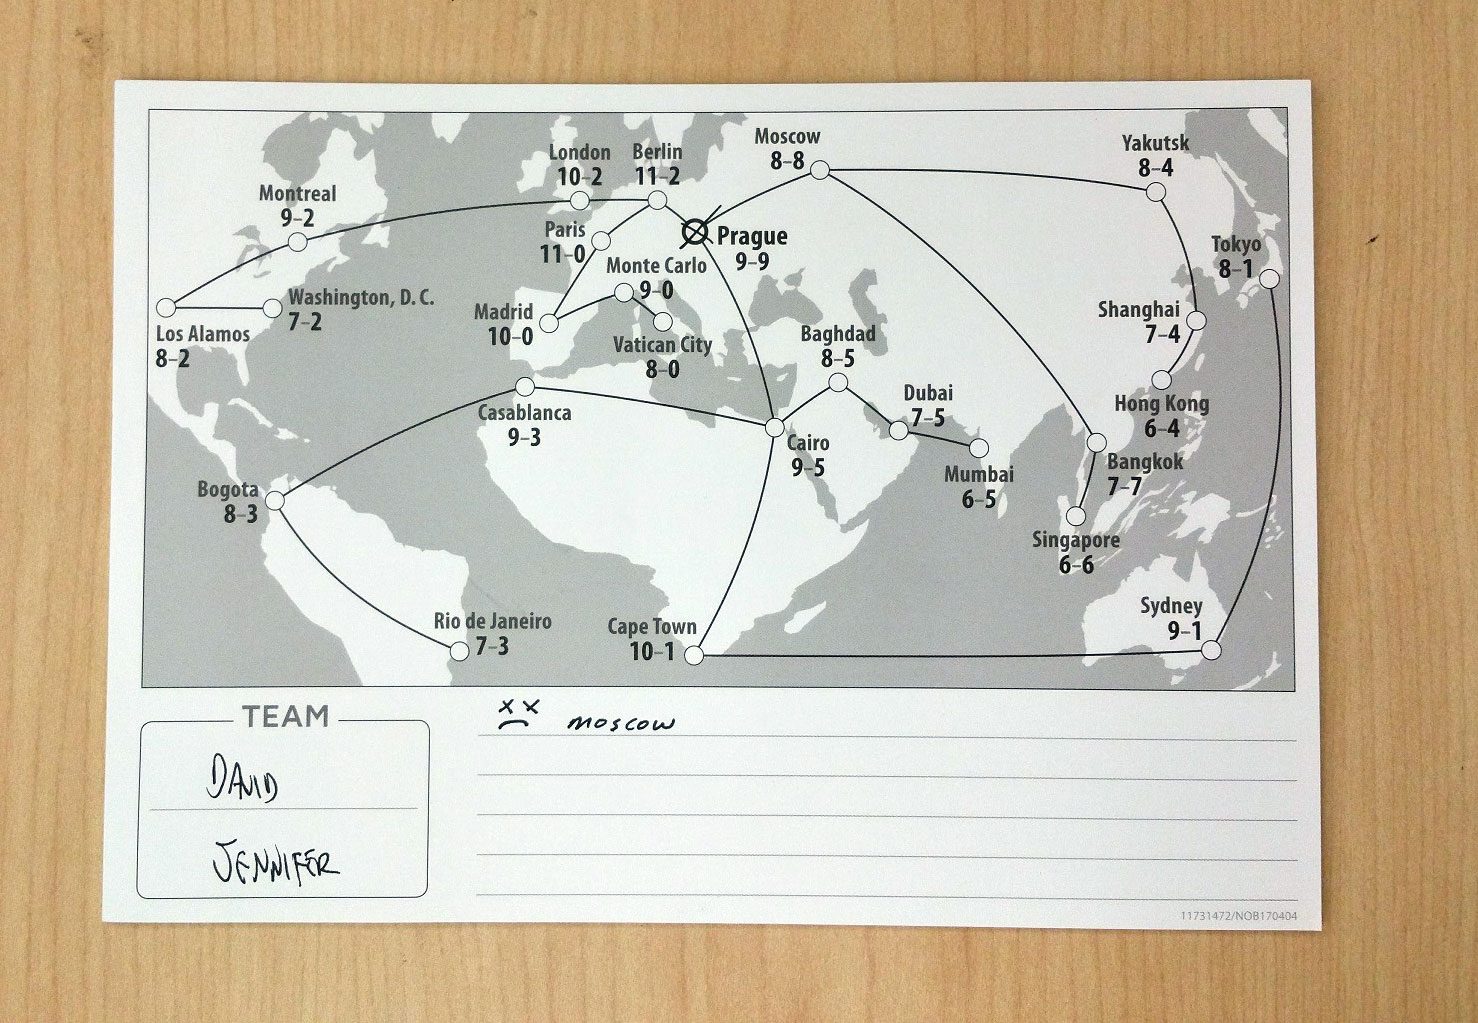 Moscow
8–8
Yakutsk
8–4
London
10–2
Berlin
11–2
Montreal
9–2
Paris
11–0
Prague
9–9
Tokyo
8–1
Monte Carlo
9–0
Washington, D. C.
7–2
Madrid
10–0
Shanghai
7–4
Los Alamos
8–2
Vatican City
8–0
Baghdad
8–5
Dubai
7–5
Casablanca
9–3
Hong Kong
6–4
Cairo
9–5
Mumbai
6–5
Bangkok
7–7
Bogota
8–3
Singapore
6–6
Rio de Janeiro
7–3
Cape Town
10–1
Sydney
9–1
TEAM
DAVID
JENNIFER
MOSCOW
11731472/NOB170404